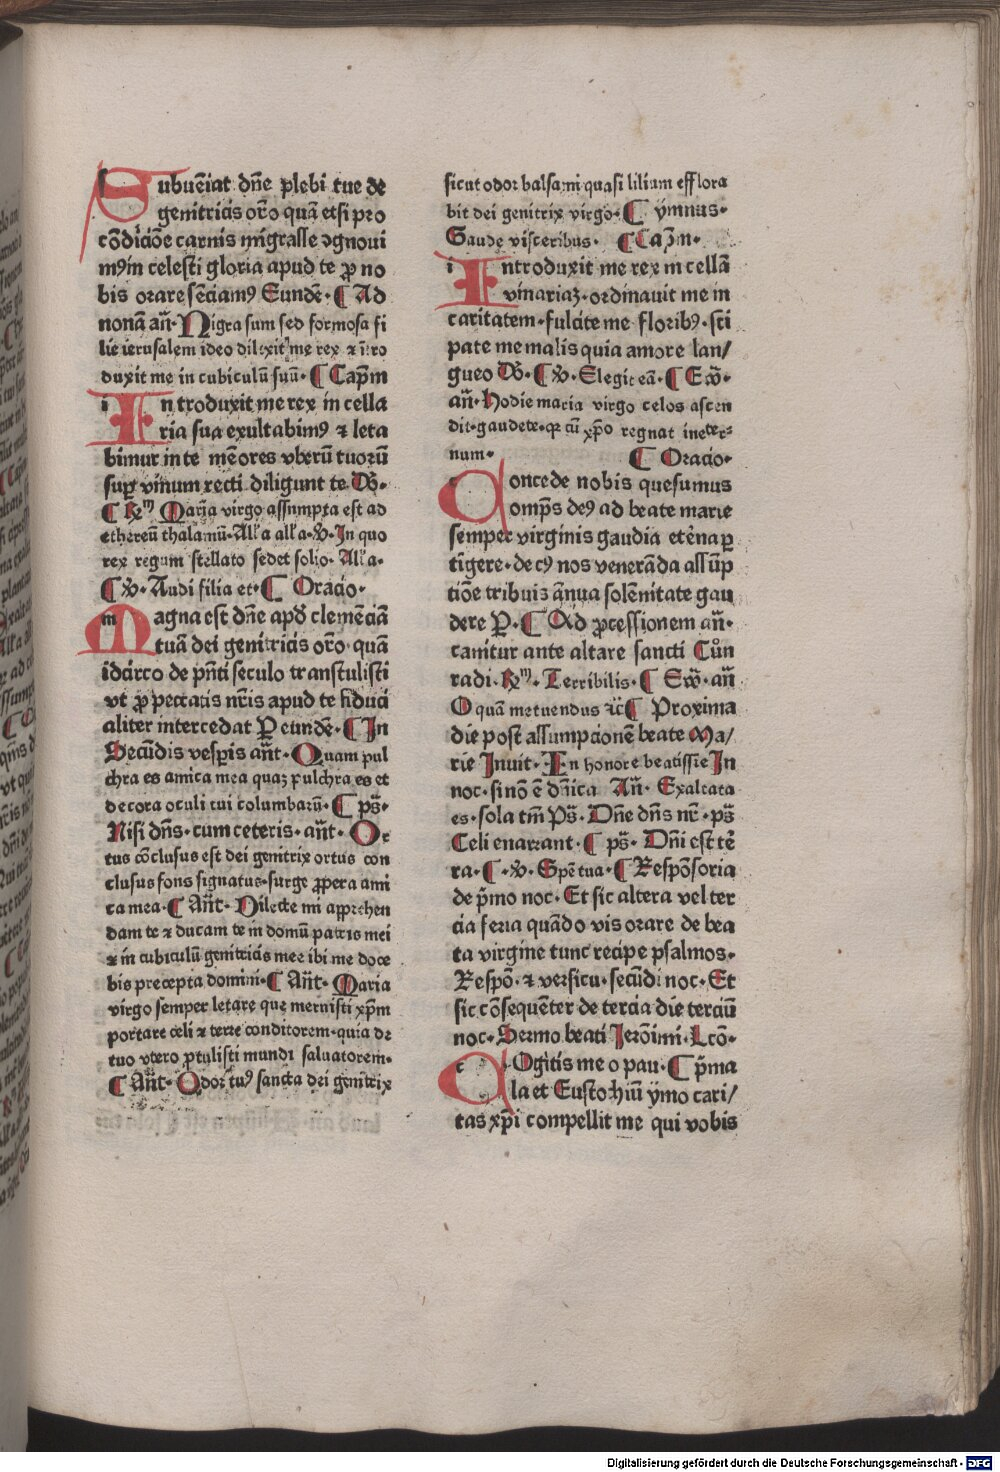 Subuēiat dñe plebi tue de
genitricis oro̅ quā etsi pro
cōdiciōe carnis migrasse ↄgnoui
mꝰ in celesti gloria apud te ꝓ no
bis orare sēciamꝰ Eundē· ¶ Ad
nonā añ· Nigra sum sed formosa fi
lie ierusalem ideo dilexit me rex ⁊ ītro
duxit me in cubiculū suū· ¶ Capm̄
Introduxit me rex in cella
ria sua exultabimꝰ ⁊ leta
bimur in te mēores vberū tuorū
suꝑ vinum recti diligunt te Dō·
¶ ℟m Maria virgo assumpta est ad
ethereū thalamū· All'a all'a· ℣· In quo
rex regum stellato sedet solio· All'a·
¶ ℣· Audi filia et· ¶ Oracio·
Magna est dñe apd̛ clemēciā
tuā dei genitricis oro̅· quā
idcirco de pñti seculo transtulisti
vt ꝓ peccatis nr̄is apud te fiducia
aliter intercedat P eundē· ¶ In
Secūdis vesꝑis añt· Quam pul
chra es amica mea quaꝫ pulchra es et
decora oculi tui columbarū· ¶ ps̄·
Nisi dñs· cum ceteris· añt· Or
tus cōclusus est dei genitrix ortus con
clusus fons signatus· surge ꝓpera ami
ca mea· ¶ Añt· Dilecte mi apprehen
dam te ⁊ ducam te in domū patris mei
⁊ in cubiculū genitricis mee ibi me doce
bis precepta domini· ¶ Añt· Maria
virgo semper letare que meruisti xp̄m
portare celi ⁊ terre conditorem· quia de
tuo vtero ꝓtulisti mundi saluatorem·
¶ Añt· Odor tuꝰ sancta dei genitrix
sicut odor balsami quasi lilium efflora
bit dei genitrix virgo· ¶ ymnus·
Gaude visceribus· ¶ Capm̄·
Introduxit me rex in cellā
vinariaꝫ· ordinauit me in
caritatem· fulcite me floribꝰ· sti
pate me malis quia amore lan/
gueo Dō· ¶ ℣· Elegit eā· ¶ Ew̄·
añ· Hodie maria virgo celos ascen
dit· gaudete· qr cū xp̄o regnat ineter⸗
num· ¶ Oracio·
Concede nobis quesumus
omp̄s deꝰ ad beate marie
semper virginis gaudia etēna ꝑ
tīgere· de cꝰ nos venerāda assūp
tiōe tribuis ānua solēnitate gau
dere P̄· ¶ Ad ꝓcessionem añ·
canitur ante altare sancti Cūn
radi· ℟m· Terribilis· ¶ Sw̄· añ
O quam metuendus ⁊c̄ ¶ Proxima
die post assumpcionē beate Ma/
rie Inuit· In honore beatissīe In
noc· si nō ē dn̄ica Añ· Exaltata
es· sola tm̄ Ps̄· Dñe dñs nr̄· ps̄
Celi enarrant· ¶ ps̄· Dñi est tē
ra· ¶ · ℣· Spē tua· ¶ Respōsoria
de p̄mo noc· Et sic altera vel ter
cia feria quādo vis orare de bea
ta virgine tunc recipe psalmos·
Respō· ⁊ versicu· secūdi noc· Et
sic cōsequēter de tercia die terciū
noc· Sermo beati Jerōimi· Lcō·
Cogitis me o pau· ¶ p̄ma
la et Eustochiū ymo cari/
tas xp̄i compellit me qui vobis
Digitalisierung gefördert durch die Deutsche Forschungsgemeinschaft - DFG